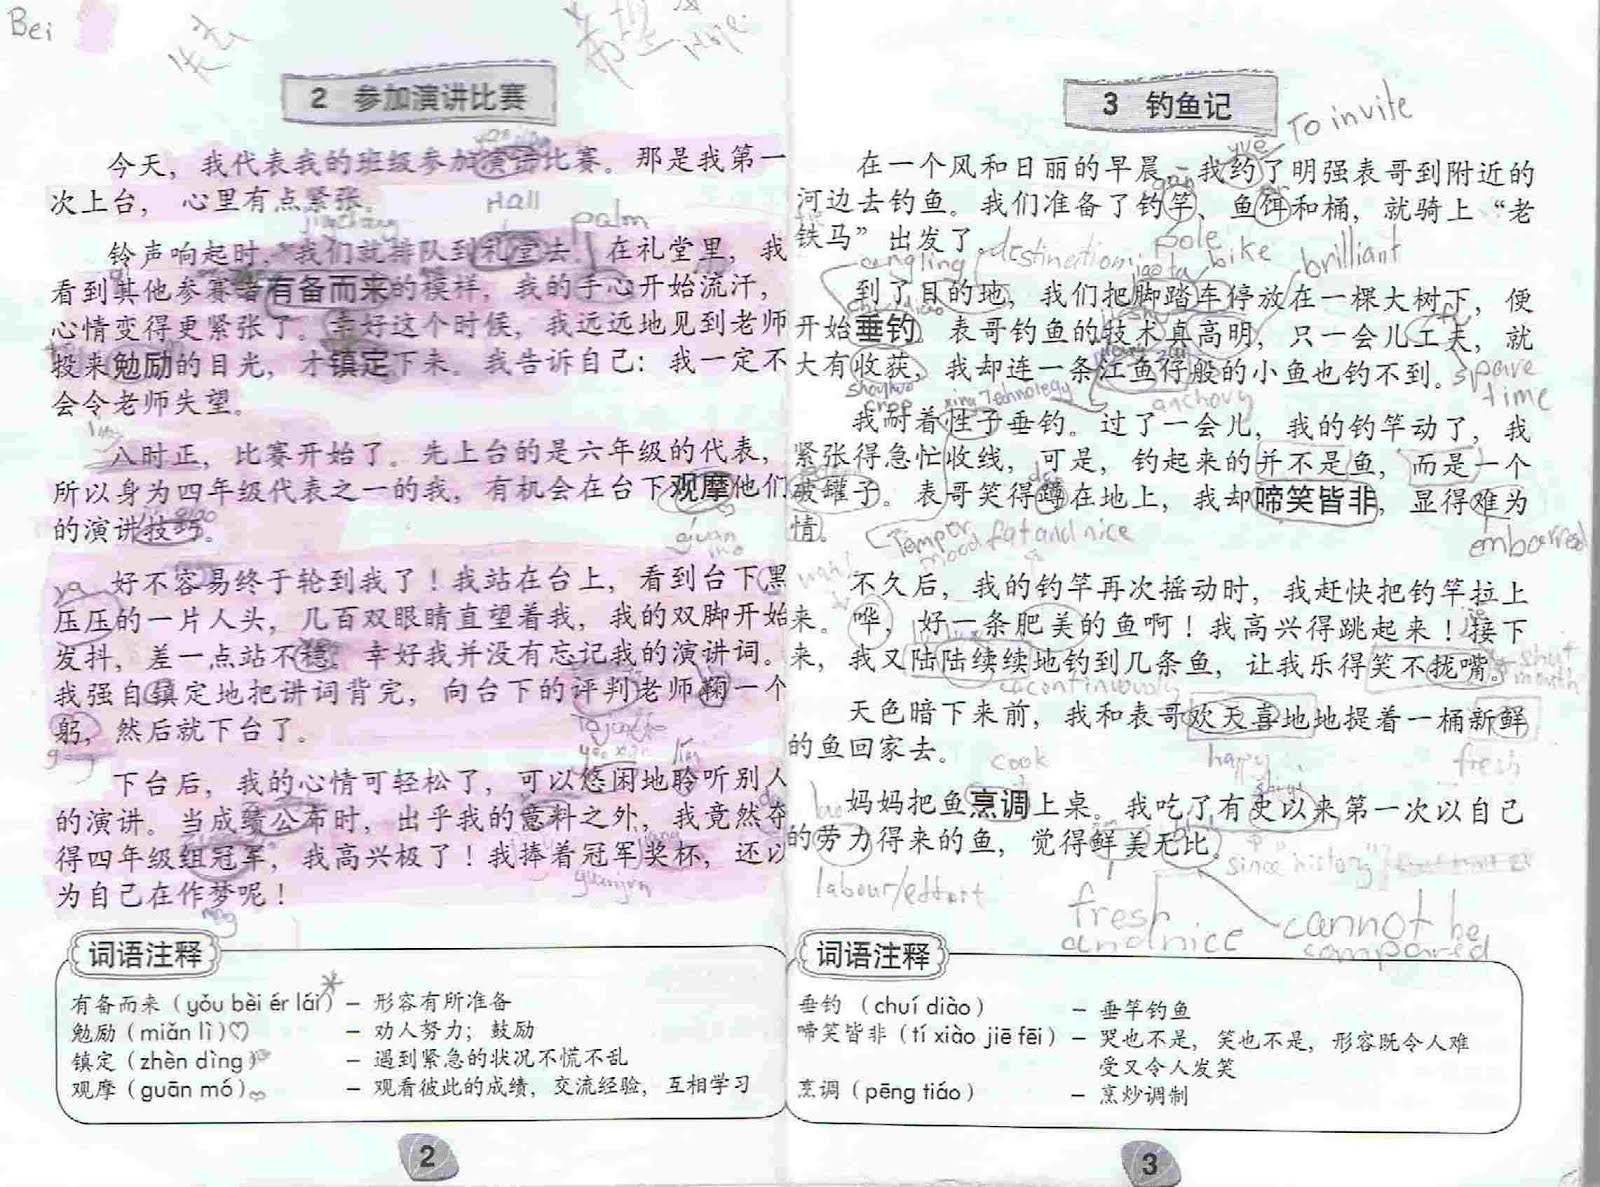 Bei
失去
希望
hope
2 参加演讲比赛
今天，我代表我的班级参加演讲比赛。那是我第一
次上台， 心里有点紧张。
Hall
palm
铃声响起时，我们就排队到礼堂去。在礼堂里，我
看到其他参赛者有备而来的模样，我的手心开始流汗，
心情变得更紧张了。幸好这个时候，我远远地见到老师
投来勉励的目光，才镇定下来。我告诉自己：我一定不
会令老师失望。
八时正，比赛开始了。先上台的是六年级的代表，
所以身为四年级代表之一的我，有机会在台下观摩他们
的演讲技巧。
guan
mo
ya
好不容易终于轮到我了！我站在台上，看到台下黑
压压的一片人头，几百双眼睛直望着我，我的双脚开始
发抖，差一点站不稳。幸好我并没有忘记我的演讲词。
我强自镇定地把讲词背完，向台下的评判老师鞠一个
躬，然后就下台了。
gong
下台后，我的心情可轻松了，可以悠闲地聆听别人
的演讲。当成绩公布时，出乎我的意料之外，我竟然夺
得四年级组冠军，我高兴极了！我捧着冠军奖杯，还以
为自己在作梦呢！
词语注释
有备而来（yǒu bèi ér lái） – 形容有所准备
勉励（miǎn lì） – 劝人努力；鼓励
镇定（zhèn dìng） – 遇到紧急的状况不慌不乱
观摩（guān mó） – 观看彼此的成绩，交流经验，互相学习
2
3 钓鱼记
To invite
yue
在一个风和日丽的早晨，我约了明强表哥到附近的
河边去钓鱼。我们准备了钓竿、鱼饵和桶，就骑上“老
铁马”出发了
angling
destination
pole
bike
brilliant
到了目的地，我们把脚踏车停放在一棵大树下，便
开始垂钓。表哥钓鱼的技术真高明，只一会儿工夫，就
大有收获，我却连一条江鱼仔般的小鱼也钓不到。
spare
time
shouhuo
crop
Technology
anchovy
我耐着性子垂钓。过了一会儿，我的钓竿动了，我
紧张得急忙收线，可是，钓起来的并不是鱼，而是一个
破罐子。表哥笑得蹲在地上，我却啼笑皆非，显得难为
情。
mood
fat and nice
不久后，我的钓竿再次摇动时，我赶快把钓竿拉上
来。哗，好一条肥美的鱼啊！我高兴得跳起来！接下
来，我又陆陆续续地钓到几条鱼，让我乐得笑不拢嘴。
shut
mouth
continuously
天色暗下来前，我和表哥欢天喜地地提着一桶新鲜
的鱼回家去。
cook
happy
fresh
妈妈把鱼烹调上桌。我吃了有史以来第一次以自己
的劳力得来的鱼，觉得鲜美无比。
since "history"
labour/effort
fresh
and nice
cannot be
compared
词语注释
垂钓 （chuí diào） – 垂竿钓鱼
啼笑皆非（tí xiào jiē fēi） – 哭也不是，笑也不是，形容既令人难
受又令人发笑
烹调（pēng tiáo） – 烹炒调制
3